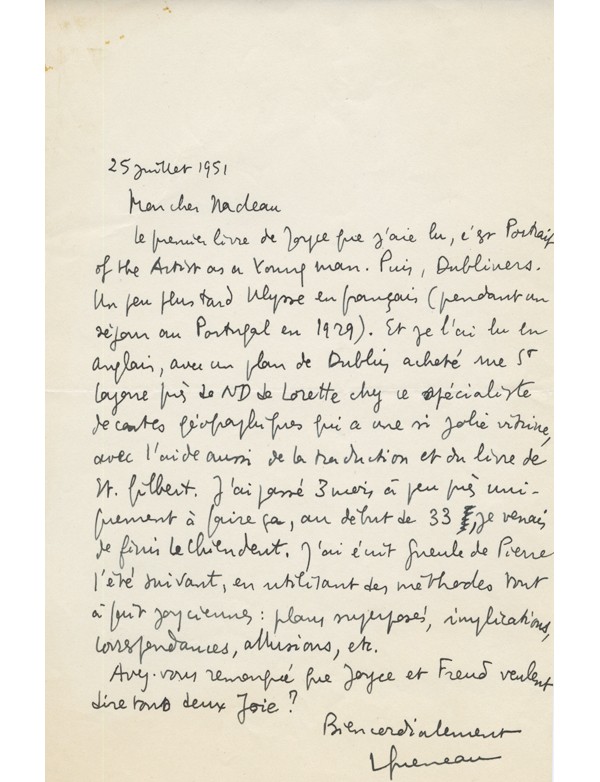 25 juillet 1951
Mon cher Nadeau
Le premier livre de Joyce que j'aie lu, c'est Portrait
of the Artist as a Young man. Puis, Dubliners.
Un peu plus tard Ulysse en français (pendant un
séjour au Portugal en 1929). Et je l'ai lu en
anglais, avec un plan de Dublin acheté rue St
Lazare près de ND de Lorette chez ce spécialiste
de cartes géographiques qui a une si jolie vitrine,
avec l'aide aussi de la traduction et du livre de
St. Gilbert. J'ai passé 3 mois à peu près uni-
quement à faire ça, au début de 33, je venais
de finir Le Chiendent. J'ai écrit Gueule de Pierre
l'été suivant, en utilisant des méthodes tout
à fait joyciennes : plans superposés, implications,
correspondances, allusions, etc.
Avez-vous remarqué que Joyce et Freud veulent
dire tous deux Joie ?
Bien cordialement
Queneau